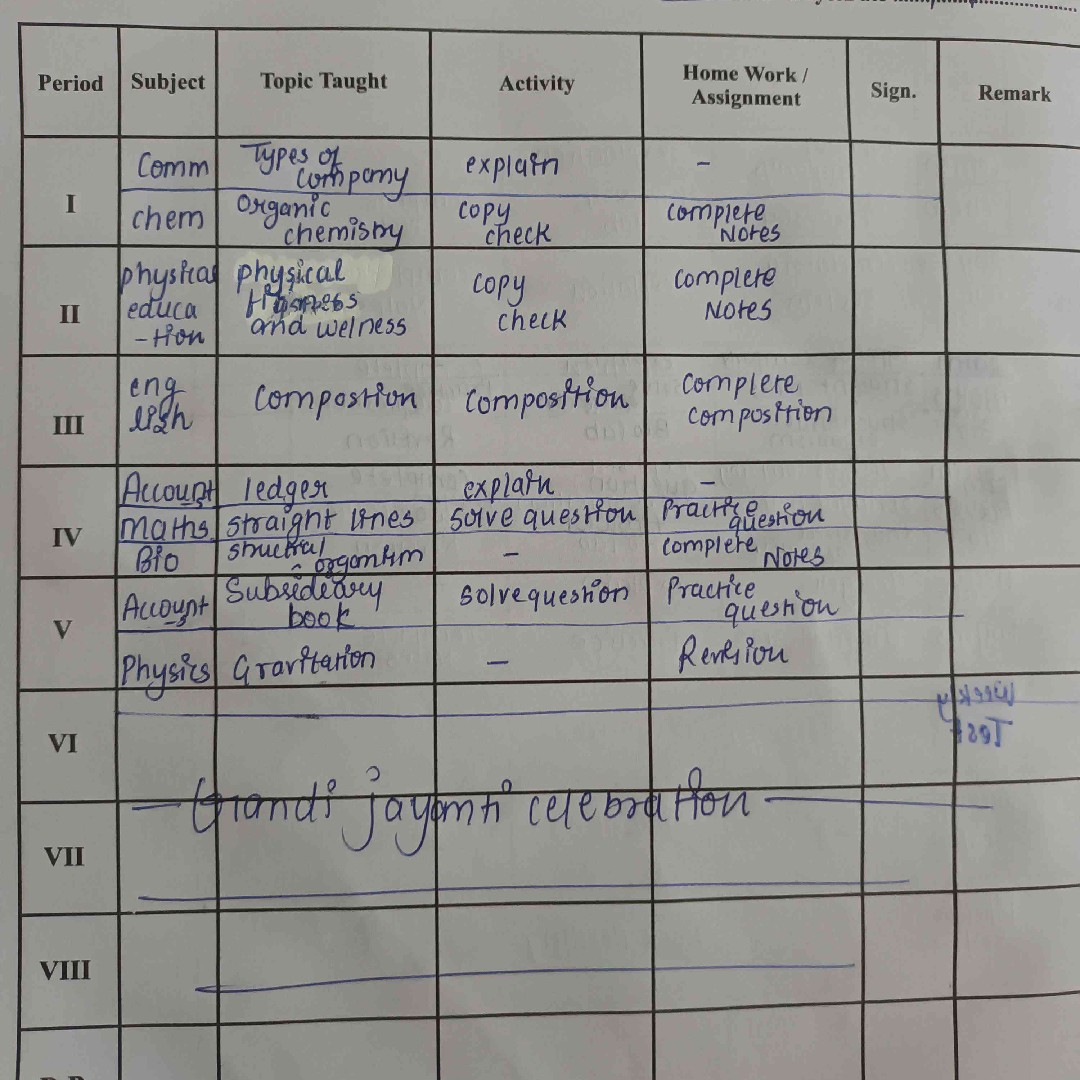 Period Subject Topic Taught Activity Home Work / Assignment Sign. Remark
I
Comm Types of company explain -
chem organic chemistry copy check complete Notes
II
physical educa -tion physical fitness and welness copy check complete Notes
III
eng lish compostion composition complete composition
IV
Account ledger explain -
Maths straight lines solve question Practice question
Bio - complete Notes
V
Account book solve question Practice question
Physics Gravitation - Revision
VI
Gandi jayanti celebration
VII
VIII